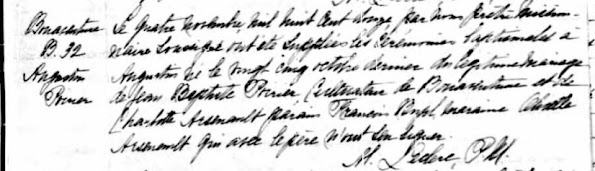 Bonaventure
B. 32
Augustin
Poirier
Le quatre novembre mil huit cent douze par nous prêtre mission-
naire soussigné ont été suppléées les cérémonies baptismales à
Augustin né le vingt cinq octobre dernier du légitime mariage
de Jean Baptiste Poirier, Cultivateur de Bonaventure et de
Charlotte Arsenault parain François marraine
Arsenault qui avec le père n'ont su signer.
M. Leclerc, P.M.